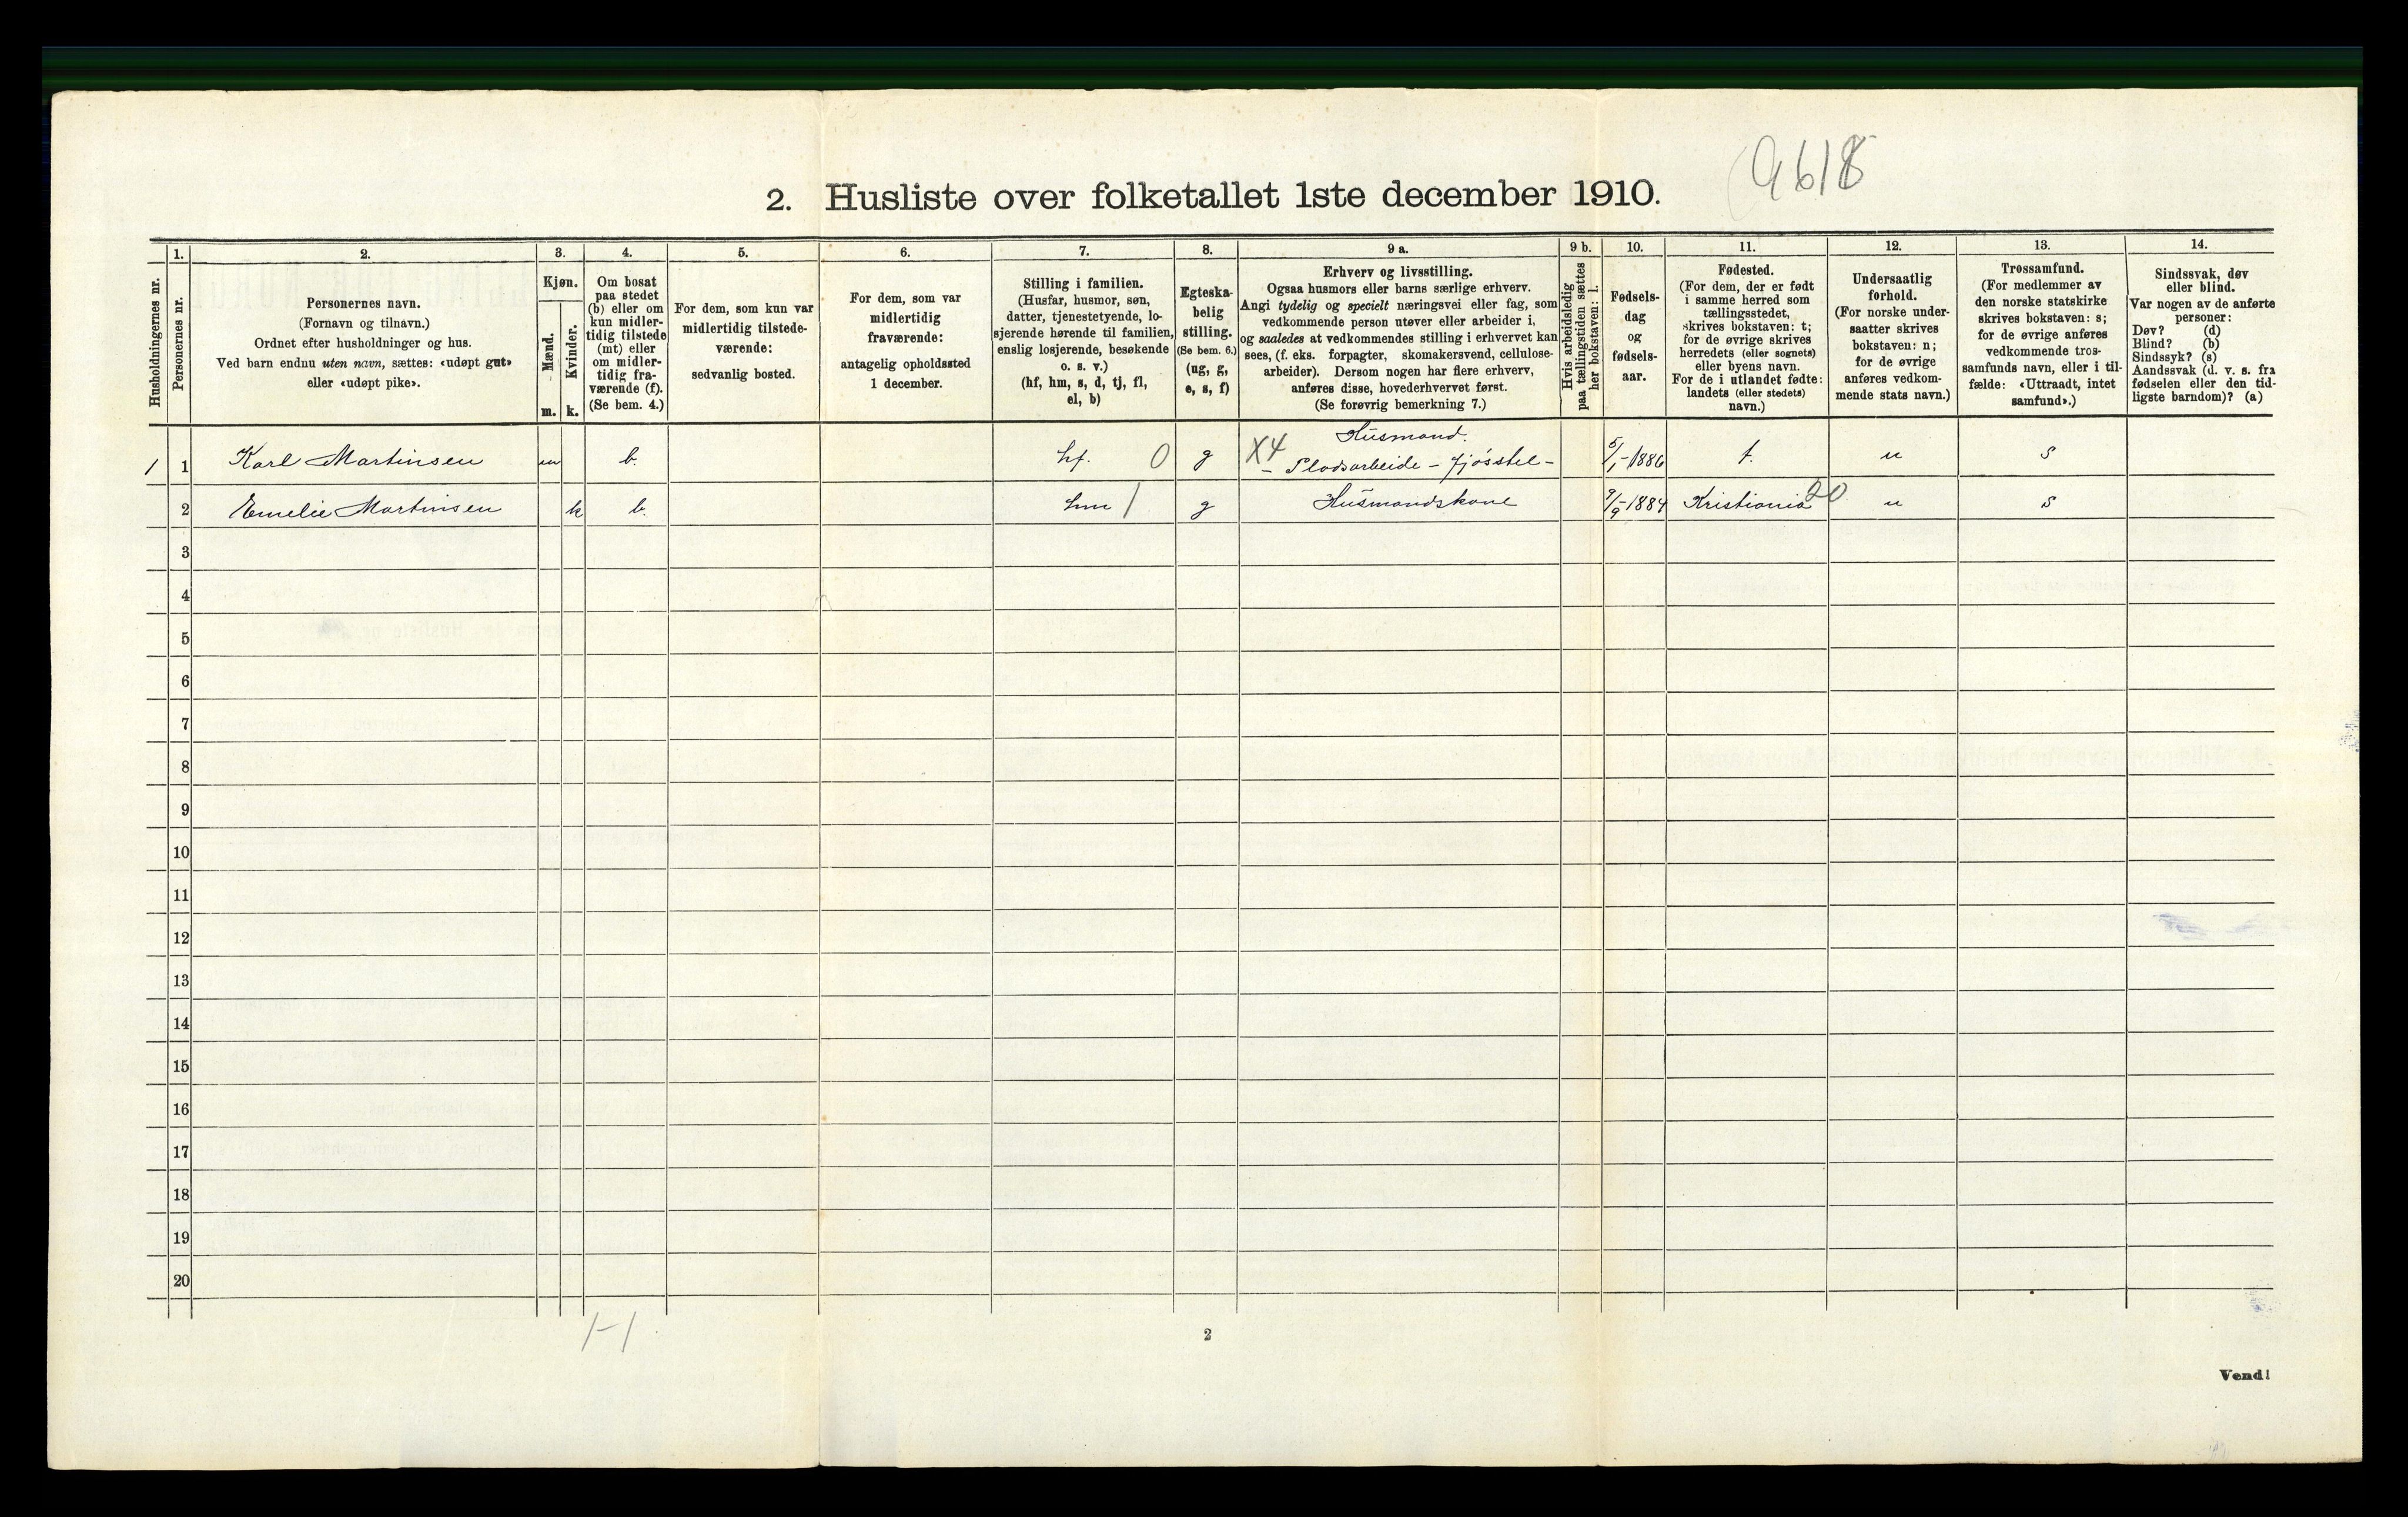 9618
2. Husliste over folketallet 1ste december 1910.
Husholdningernes nr.
1.
Personernes nr.
2.
Personernes navn.
(Fornavn og tilnavn.)
Ordnet efter husholdninger og hus.
Ved barn endnu uten navn, sættes: «udøpt gut»
eller «udøpt pike».
3.
Kjøn.
Mænd.
Kvinder.
m.
k.
4.
Om bosat
paa stedet
(b) eller om
kun midler-
tidig tilstede
(mt) eller
om midler-
tidig fra-
værende (f).
(Se bem. 4.)
5.
For dem, som kun var
midlertidig tilstede-
værende:
sedvanlig bosted.
6.
For dem, som var
midlertidig
fraværende:
antagelig opholdssted
1 december.
7.
Stilling i familien.
(Husfar, husmor, søn,
datter, tjenestetyende, lo-
sjerende hørende til familien,
enslig losjerende, besøkende
o. s. v.)
(hf, hm, s, d, tj, fl,
el, b)
8.
Egteska-
belig
stilling.
(Se bem. 6.)
(ug, g,
e, s, f)
9 a.
Erhverv og livsstilling.
Ogsaa husmors eller barns særlige erhverv.
Angi tydelig og specielt næringsvei eller fag, som
vedkommende person utøver eller arbeider i,
og saaledes at vedkommendes stilling i erhvervet kan
sees, (f. eks. forpagter, skomakersvend, cellulose-
arbeider). Dersom nogen har flere erhverv,
anføres disse, hovederhvervet først.
(Se forøvrig bemerkning 7.)
9 b.
Hvis arbeidsledig
paa tællingstiden sættes
her bokstaven: l.
10.
Fødsels-
dag
og
fødsels-
aar.
11.
Fødested.
(For dem, der er født
i samme herred som
tællingsstedet,
skrives bokstaven: t;
for de øvrige skrives
herredets (eller sognets)
eller byens navn.
For de i utlandet fødte:
landets (eller stedets)
navn.)
12.
Undersaatlig
forhold.
(For norske under-
saatter skrives
bokstaven: n;
for de øvrige
anføres vedkom-
mende stats navn.)
13.
Trossamfund.
(For medlemmer av
den norske statskirke
skrives bokstaven: s;
for de øvrige anføres
vedkommende tros-
samfunds navn, eller i til-
fælde: «Uttraadt, intet
samfund».)
14.
Sindssvak, døv
eller blind.
Var nogen av de anførte
personer:
Døv? (d)
Blind? (b)
Sindssyk? (s)
Aandssvak (d. v. s. fra
fødselen eller den tid-
ligste barndom)? (a)
Husmand.
1 1 Karl Martinsen m b. hf. 0 g X4 - Pladsarbeide - fjøsstel - 5/1-1886 t. n s
2 Emelie Martinsen k b. hm 1 g Husmandskone 9/9-1884 Kristiania 20 n s
3
4
5
6
7
8
9
10
11
12
13
14
15
16
17
18
19
20
1-1
2
Vend!